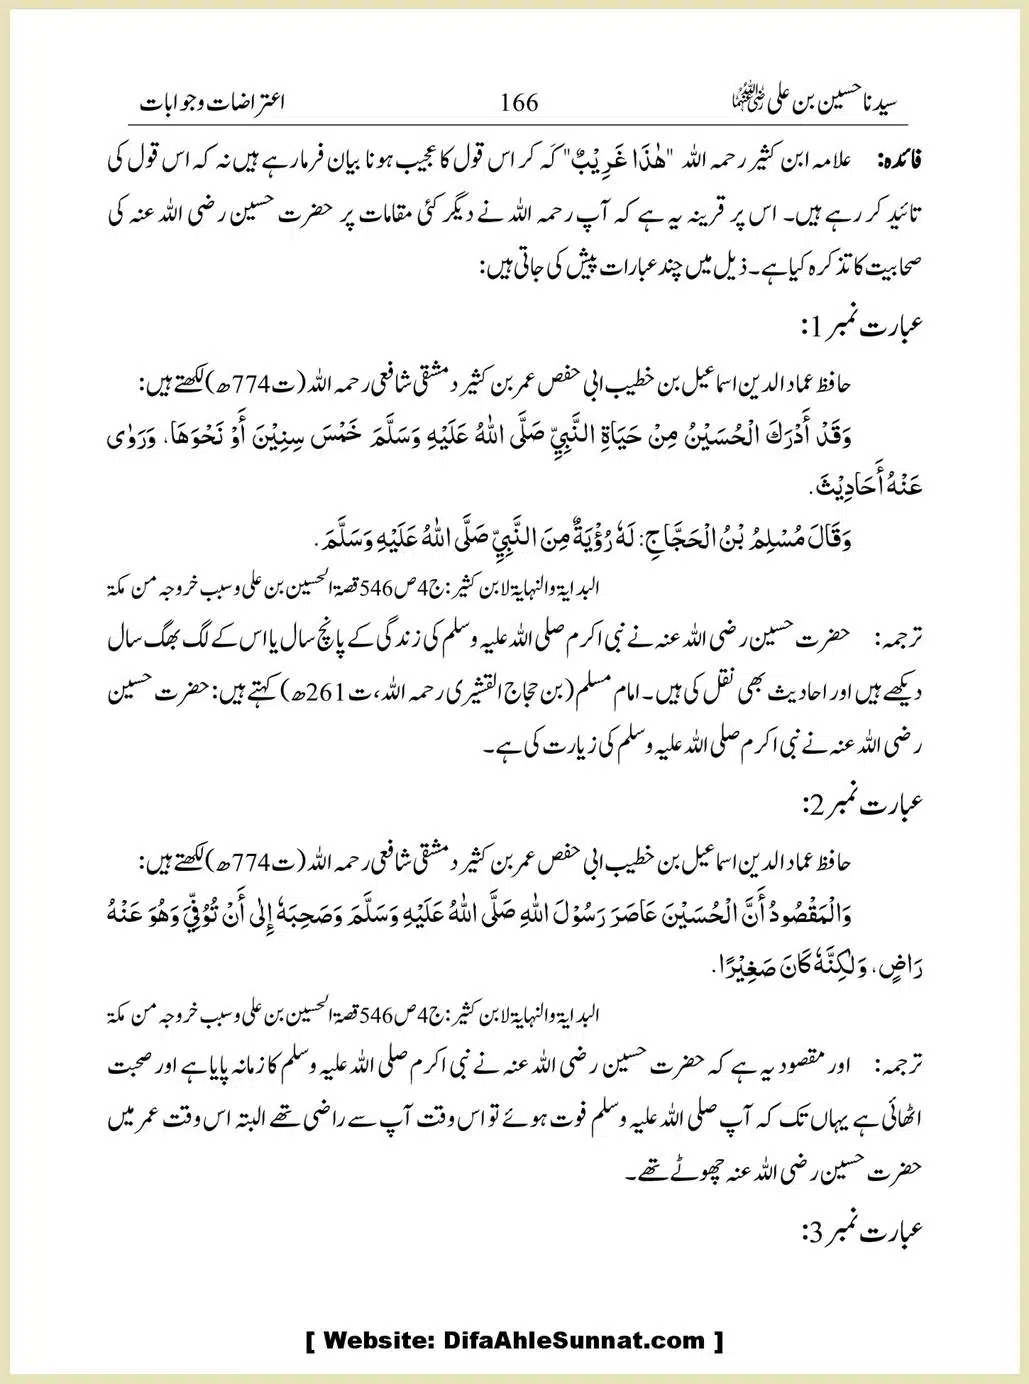 سیدنا حسین بن علی رضی اللہ عنہما 166 اعتراضات و جوابات
فائدہ: علامہ ابن کثیر رحمہ اللہ "هٰذَا غَرِيْبٌ" کَہ کر اس قول کا عجیب ہونا بیان فرمارہے ہیں نہ کہ اس قول کی
تائید کر رہے ہیں۔ اس پر قرینہ یہ ہے کہ آپ رحمہ اللہ نے دیگر کئی مقامات پر حضرت حسین رضی اللہ عنہ کی
صحابیت کا تذکرہ کیا ہے۔ ذیل میں چند عبارات پیش کی جاتی ہیں:
عبارت نمبر 1:
حافظ عماد الدین اسماعیل بن خطیب ابی حفص عمر بن کثیر دمشقی شافعی رحمہ اللہ (ت774ھ) لکھتے ہیں:
وَقَدْ أَدْرَكَ الْحُسَيْنُ مِنْ حَيَاةِ النَّبِيِّ صَلَّى اللهُ عَلَيْهِ وَسَلَّمَ خَمْسَ سِنِيْنَ أَوْ نَحْوَهَا، وَرَوٰى
عَنْهُ أَحَادِيْثَ.
وَقَالَ مُسْلِمُ بْنُ الْحَجَّاجِ: لَهٗ رُؤْيَةٌ مِنَ النَّبِيِّ صَلَّى اللهُ عَلَيْهِ وَسَلَّمَ.
البدایۃ والنہایۃ لابن کثیر: ج4 ص546 قصۃ الحسین بن علی وسبب خروجہ من مکۃ
ترجمہ: حضرت حسین رضی اللہ عنہ نے نبی اکرم صلی اللہ علیہ وسلم کی زندگی کے پانچ سال یا اس کے لگ بھگ سال
دیکھے ہیں اور احادیث بھی نقل کی ہیں۔ امام مسلم (بن حجاج القشیری رحمہ اللہ، ت261ھ) کہتے ہیں: حضرت حسین
رضی اللہ عنہ نے نبی اکرم صلی اللہ علیہ وسلم کی زیارت کی ہے۔
عبارت نمبر 2:
حافظ عماد الدین اسماعیل بن خطیب ابی حفص عمر بن کثیر دمشقی شافعی رحمہ اللہ (ت774ھ) لکھتے ہیں:
وَالْمَقْصُودُ أَنَّ الْحُسَيْنَ عَاصَرَ رَسُوْلَ اللهِ صَلَّى اللهُ عَلَيْهِ وَسَلَّمَ وَصَحِبَهٗ إِلٰى أَنْ تُوُفِّيَ وَهُوَ عَنْهُ
رَاضٍ، وَلٰكِنَّهٗ كَانَ صَغِيْرًا.
البدایۃ والنہایۃ لابن کثیر: ج4 ص546 قصۃ الحسین بن علی وسبب خروجہ من مکۃ
ترجمہ: اور مقصود یہ ہے کہ حضرت حسین رضی اللہ عنہ نے نبی اکرم صلی اللہ علیہ وسلم کا زمانہ پایا ہے اور صحبت
اٹھائی ہے یہاں تک کہ آپ صلی اللہ علیہ وسلم فوت ہوئے تو اس وقت آپ سے راضی تھے البتہ اس وقت عمر میں
حضرت حسین رضی اللہ عنہ چھوٹے تھے۔
عبارت نمبر 3:
[ Website: DifaAhleSunnat.com ]